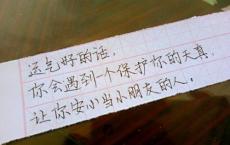 运气好的话，
你会遇到一个保护你的天真，
让你安小当小朋友的人。